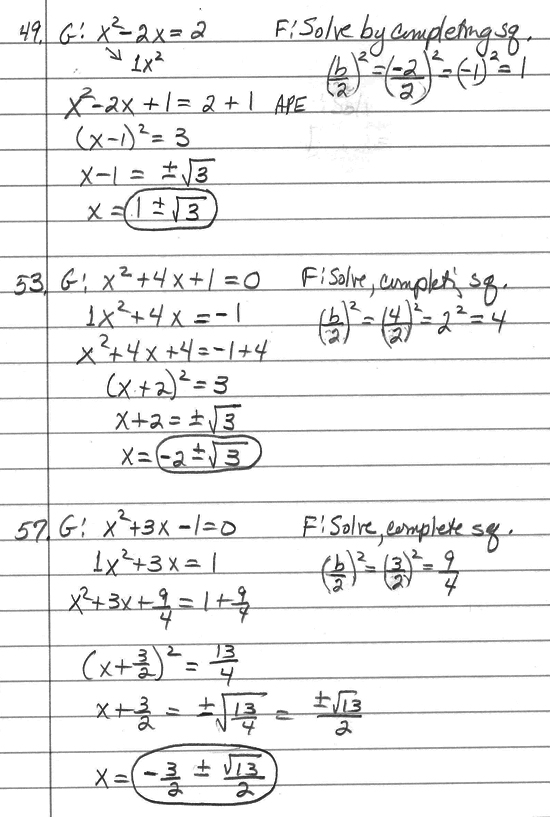 49. G: x² - 2x = 2 F: Solve by completing sq.
↘ 1x² (b/2)² = (-2/2)² = (-1)² = 1
x² - 2x + 1 = 2 + 1 APE
(x - 1)² = 3
x - 1 = ±√3
x = 1 ± √3
53. G: x² + 4x + 1 = 0 F: Solve, complet'g sq.
1x² + 4x = -1 (b/2)² = (4/2)² = 2² = 4
x² + 4x + 4 = -1 + 4
(x + 2)² = 3
x + 2 = ±√3
x = -2 ± √3
57. G: x² + 3x - 1 = 0 F: Solve, complete sq.
1x² + 3x = 1 (b/2)² = (3/2)² = 9/4
x² + 3x + 9/4 = 1 + 9/4
(x + 3/2)² = 13/4
x + 3/2 = ±√(13/4) = ±√13/2
x = -3/2 ± √13/2